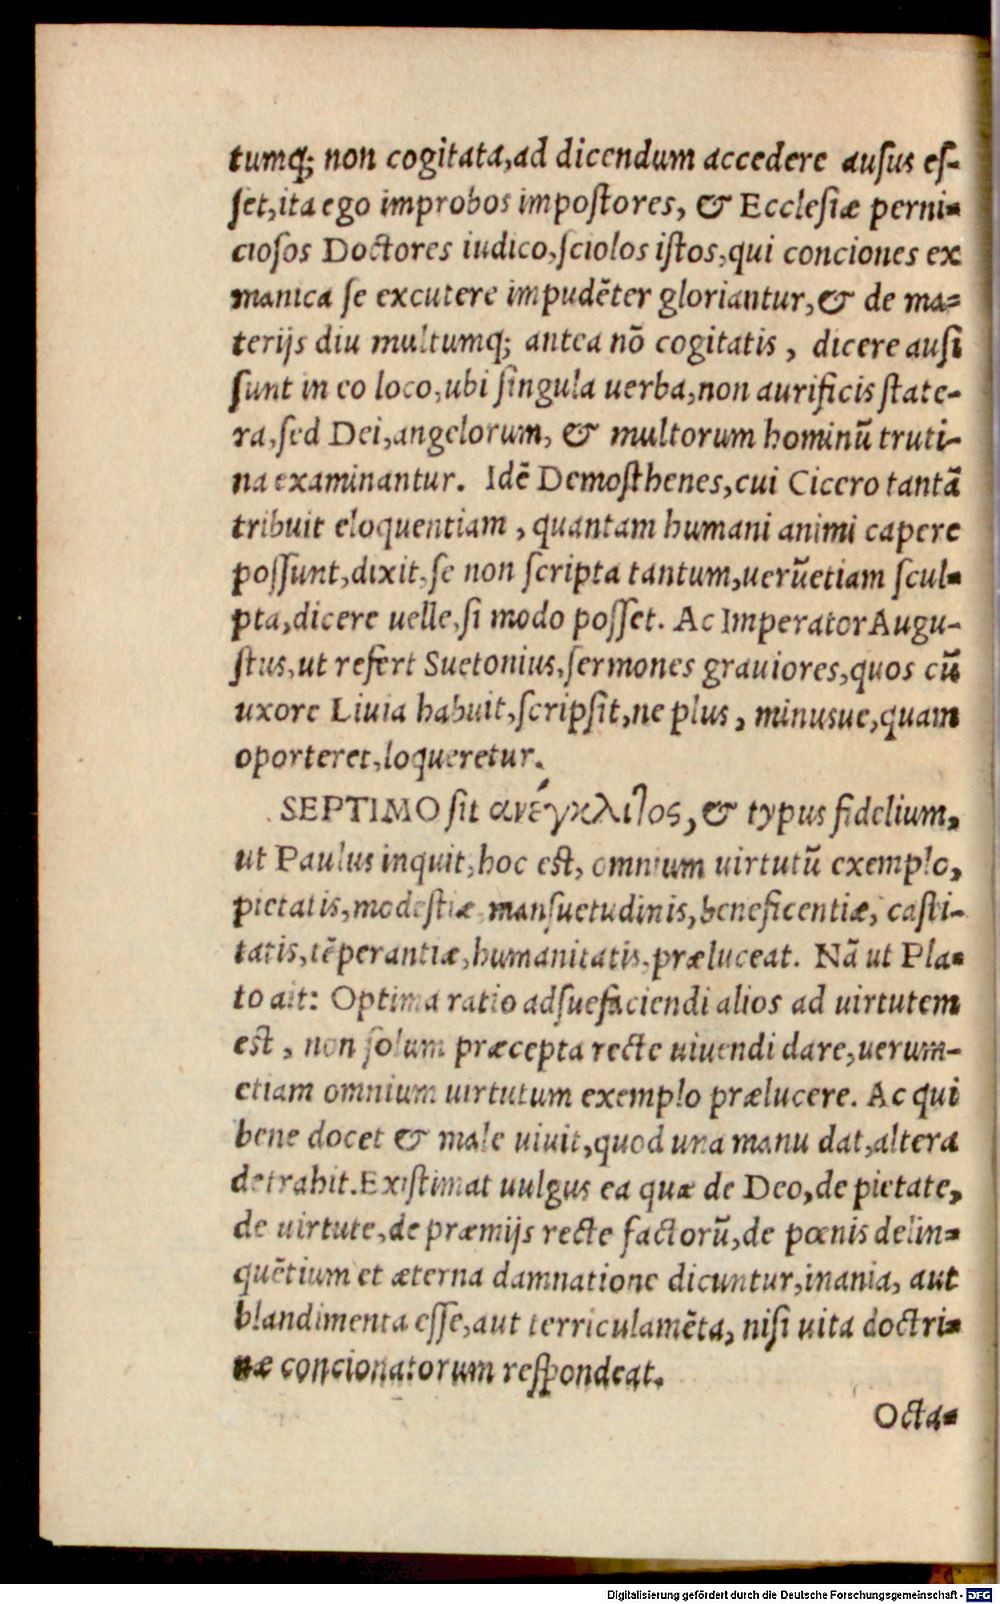 tumq́; non cogitata,ad dicendum accedere ausus es-
set,ita ego improbos impostores, & Ecclesiæ perni-
ciosos Doctores iudico,sciolos istos,qui conciones ex
manica se excutere impudẽter gloriantur,& de ma-
terijs diu multumq́; antea nõ cogitatis , dicere ausi
sunt in eo loco,ubi singula uerba,non aurificis state-
ra,sed Dei,angelorum, & multorum hominũ truti-
na examinantur. Idẽ Demosthenes,cui Cicero tantã
tribuit eloquentiam , quantam humani animi capere
possunt,dixit,se non scripta tantum,uerũetiam scul-
pta,dicere uelle,si modo posset. Ac Imperator Augu-
stus,ut refert Suetonius,sermones grauiores,quos cũ
uxore Liuia habuit,scripsit,ne plus , minusue,quam
oporteret,loqueretur.
SEPTIMO sit ανέγκλιτος, & typus fidelium,
ut Paulus inquit,hoc est, omnium uirtutũ exemplo,
pietatis,modestiæ,mansuetudinis,beneficentiæ, casti-
tatis,tẽperantiæ,humanitatis,præluceat. Nã ut Pla-
to ait: Optima ratio adsuefaciendi alios ad uirtutem
est , non solum præcepta recte uiuendi dare,uerum-
etiam omnium uirtutum exemplo prælucere. Ac qui
bene docet & male uiuit,quod una manu dat,altera
detrahit.Existimat uulgus ea quæ de Deo,de pietate,
de uirtute,de præmijs recte factorũ,de pœnis delin-
quẽtium et æterna damnatione dicuntur,inania, aut
blandimenta esse,aut terriculamẽta, nisi uita doctri-
næ concionatorum respondeat.
Octa-
Digitalisierung gefördert durch die Deutsche Forschungsgemeinschaft - DFG